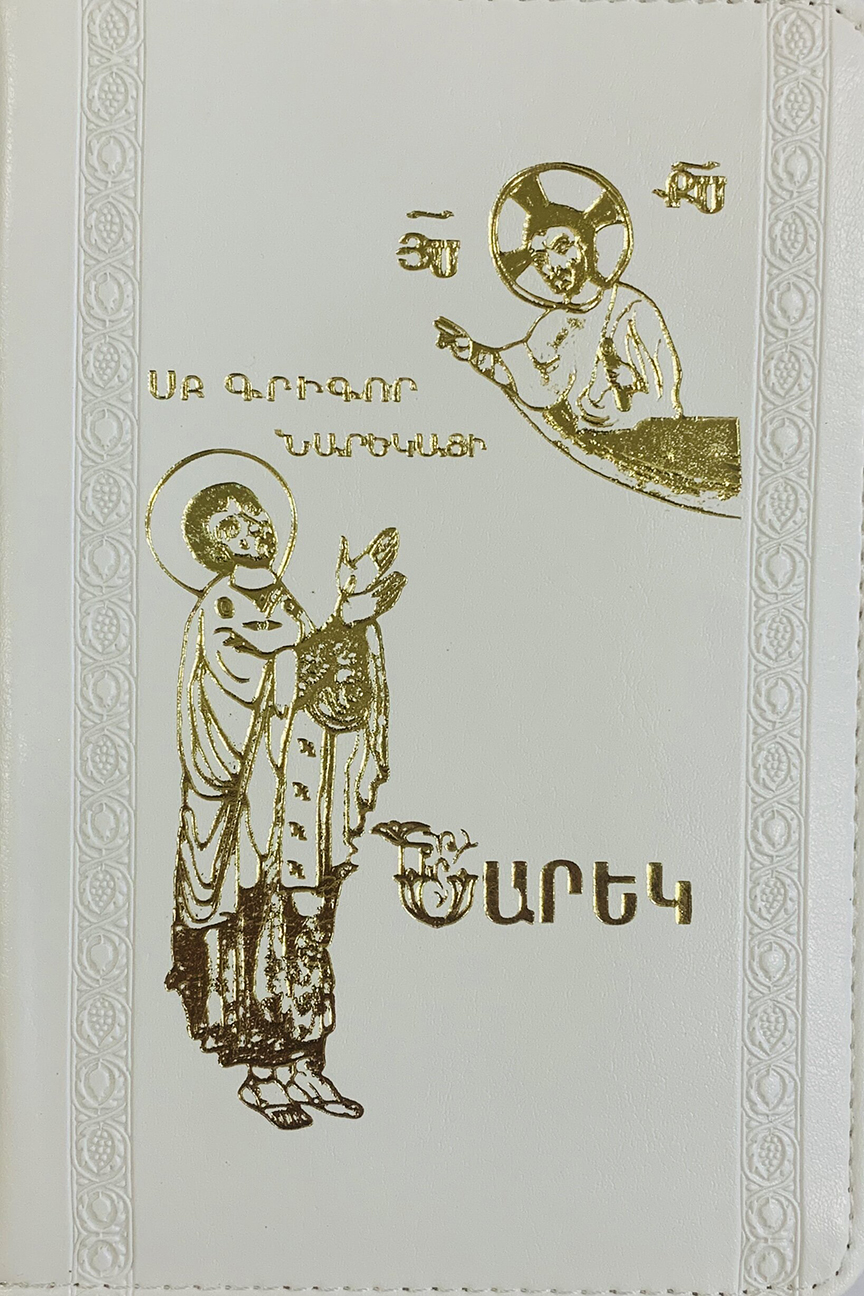 ՅՍ ՔՍ
ՍԲ ԳՐԻԳՈՐ
ՆԱՐԵԿԱՑԻ
ՆԱՐԵԿ